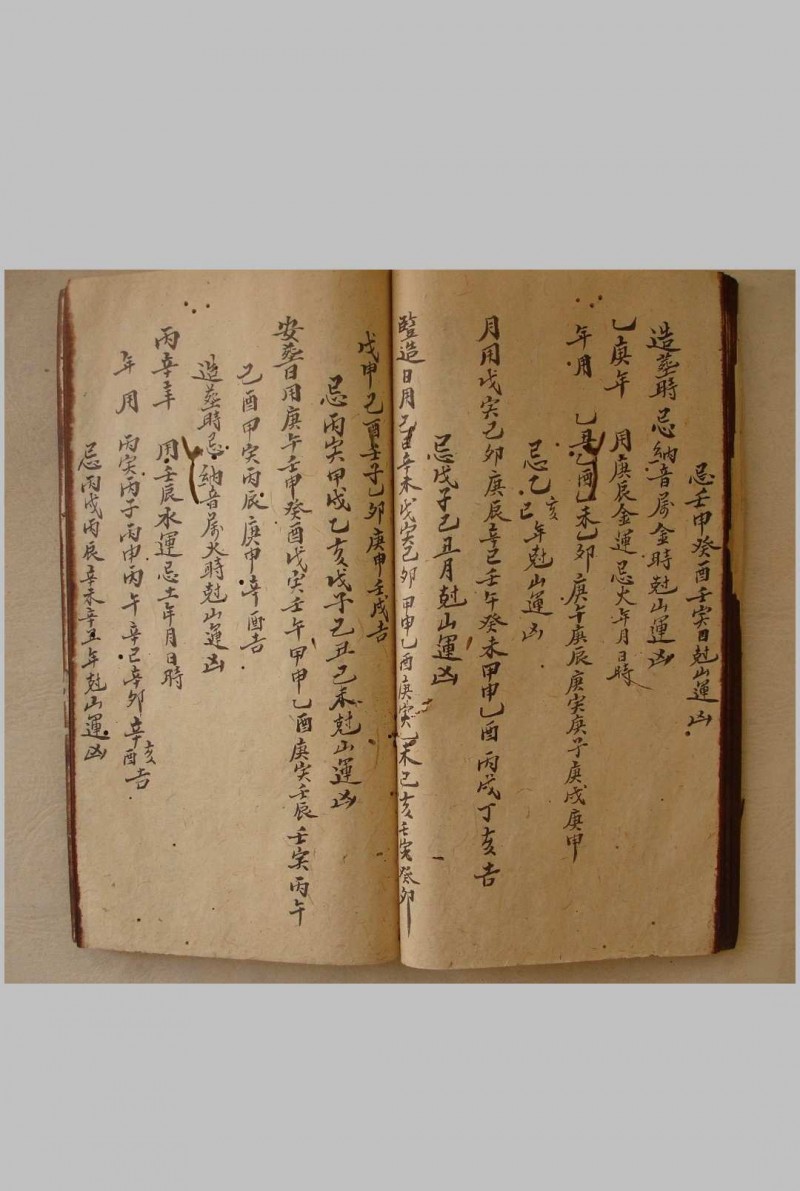 忌壬申癸酉壬寅日尅山運凶
造塟時忌納音屬金時尅山運凶
乙庚年 用庚辰金運忌火年月日時
年月 乙丑乙酉乙未乙卯庚午庚辰庚寅庚子庚戌庚申
忌乙亥巳年尅山運凶
月用戊寅己卯庚辰辛巳壬午癸未甲申乙酉丙戌丁亥吉
忌戊子己丑月尅山運凶
竪造日用己丑辛未戊寅己卯甲申乙酉庚寅乙未己亥壬寅癸卯
戊申己酉壬子乙卯庚申壬戌吉
忌丙寅甲戌乙亥戊子己丑己未尅山運凶
安塟日用庚午壬申癸酉戊寅壬午甲申乙酉庚寅壬辰壬寅丙午
己酉甲寅丙辰庚申辛酉吉
造塟時忌納音屬火時尅山運凶
丙辛年 用壬辰水運忌土年月日時
年用 丙寅丙子丙申丙午辛巳辛卯辛酉亥吉
忌丙戌丙辰辛未辛丑年尅山運凶